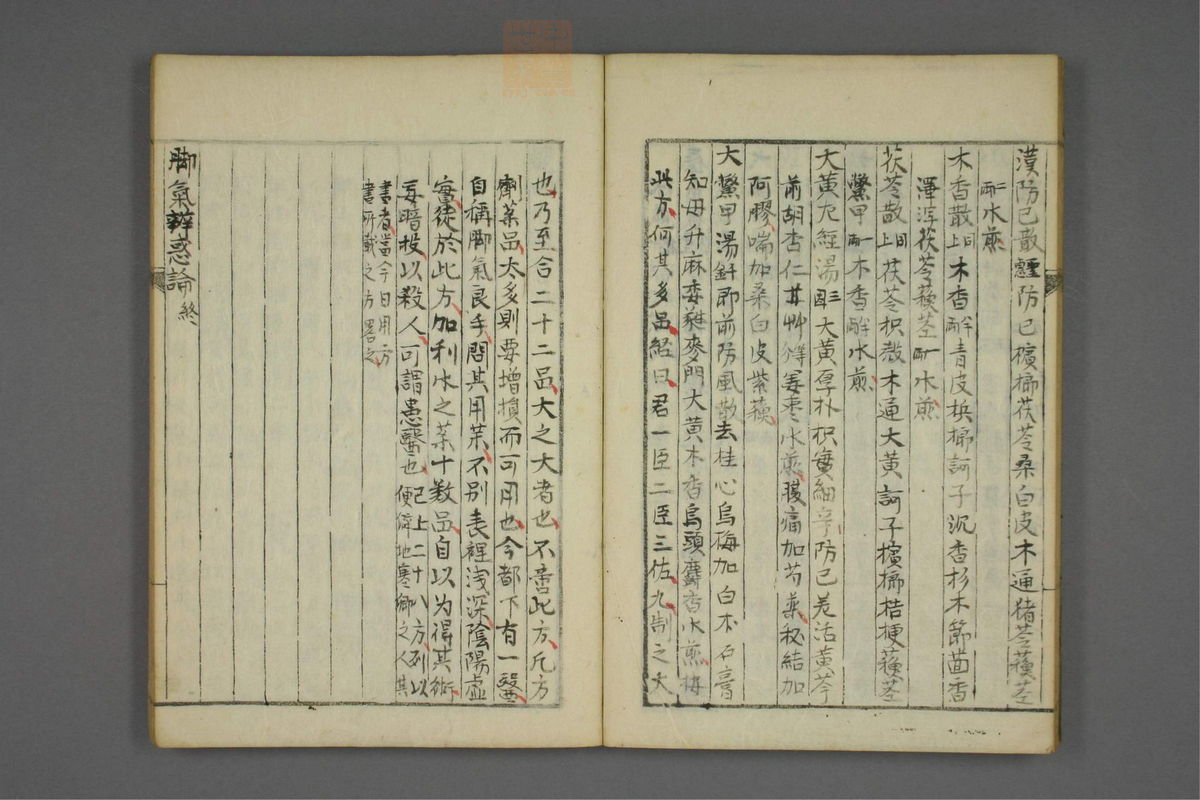 漢防已散 防已檳榔茯苓桑白皮木通猪苓蘓莖
二兩水煎
木香散上同木香半兩青皮檳榔訶子沉香杉木節茴香
渾淳茯苓蘓莖一兩水煎
茯苓散上同茯苓枳殻木通大黄訶子檳榔桔梗蘓莖
鱉甲一兩木香半兩水煎
大黄左經湯三因大黄厚朴枳實細辛防已羌活黄芩
前胡杏仁甘艸等姜枣水煎腹痛加芍薬秘結加
阿膠喘加桑白皮紫蘓
大鱉甲湯 即前防風散去桂心烏梅加白木石膏
知母升麻委蕤麥門大黄木香烏頭麝香水煎梅
此方何其多品経曰君一臣二臣三佐九制之大
也乃至合二十二品大之大者也不啻此方凡方
劑薬品太多則要増損而可用也今都下有一醫
自稱脚氣良手閲其用薬不别表裡浅深陰陽虚
實徒於此方加利水之薬十数品自以为得其術
妄暗投以殺人可謂愚醫也已上二十八方列以便偉地寒郷之人其
書者當今日用方書所載之方畧之
脚氣辨惑論終